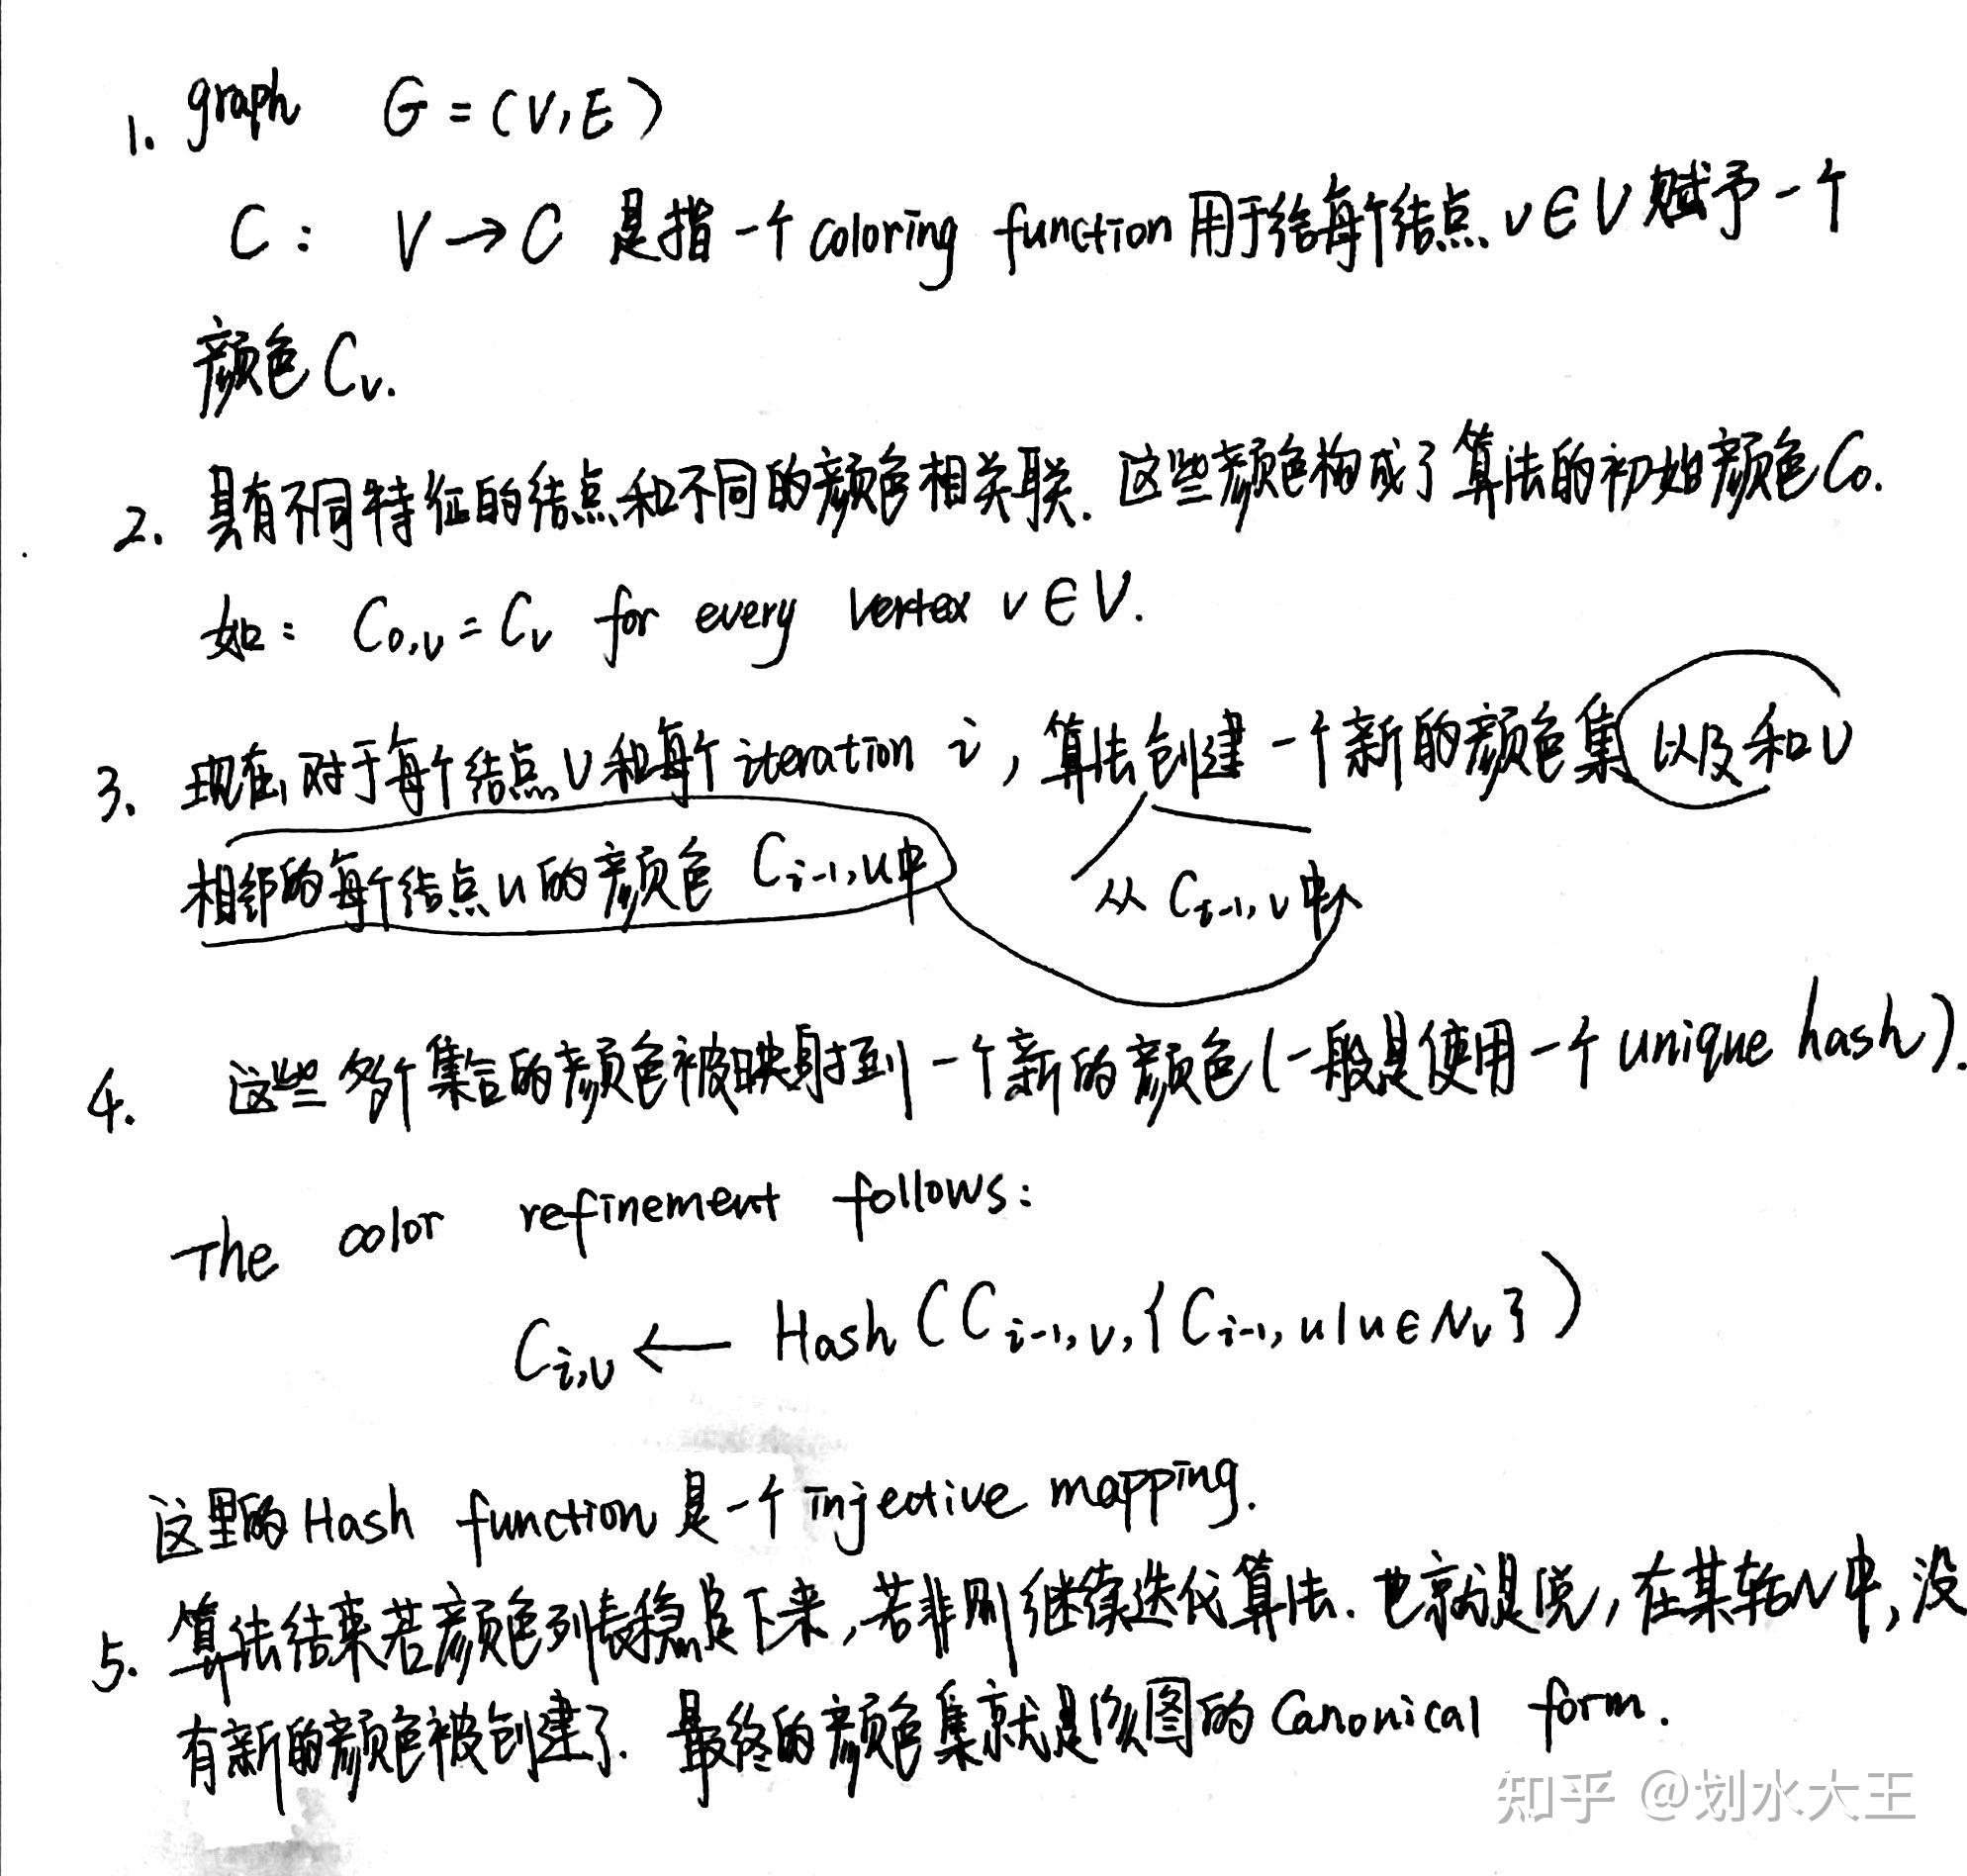 1. graph G=(V,E)
C: V→C 是指一个 coloring function 用于给每个结点 v∈V 赋予一个
颜色 Cv.
2. 具有不同特征的结点和不同的颜色相关联. 这些颜色构成了算法的初始颜色 C0.
如: C0,v = Cv for every vertex v∈V.
3. 现在,对于每个结点v和每个iteration i, 算法创建一个新的颜色集 以及和v
相邻的每个结点u的颜色 Ci-1,u中
从 Ci-1,v中
4. 这些多个集合的颜色被映射到一个新的颜色(一般是使用一个unique hash).
The color refinement follows:
Ci,v ← Hash(Ci-1,v,{Ci-1,u|u∈Nv})
这里的Hash function是一个injective mapping.
5. 算法结束若颜色列表稳定下来,若非则继续迭代算法. 也就是说,在某轮N中,没
有新的颜色被创建了. 最终的颜色集就是该图的 Canonical form.
知乎 @划水大王